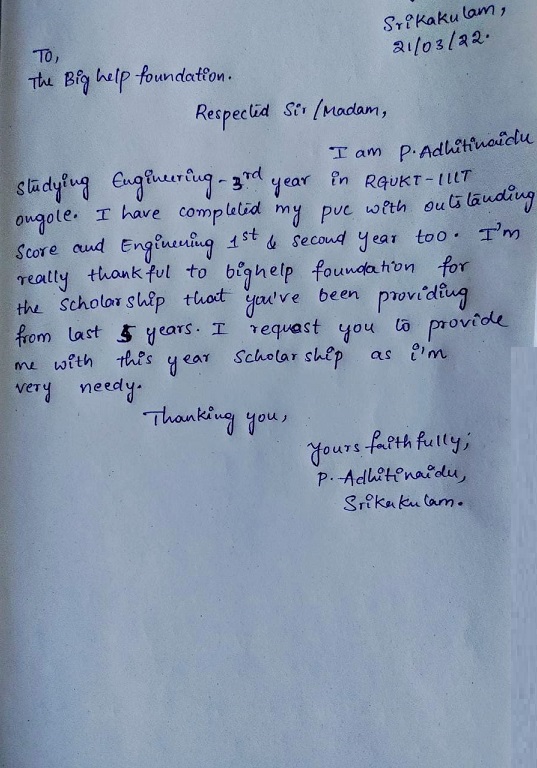 Srikakulam,
21/03/22.
To,
The Big help foundation.
Respected Sir/Madam,
I am P. Adhitinaidu
studying Engineering - 3rd year in RGUKT-IIIT
ongole. I have completed my puc with outstanding
score and Engineering 1st & second year too. I'm
really thankful to bighelp foundation for
the scholarship that you've been providing
from last 5 years. I request you to provide
me with this year scholarship as i'm
very needy.
Thanking you,
Yours faithfully;
P. Adhitinaidu,
Srikakulam.